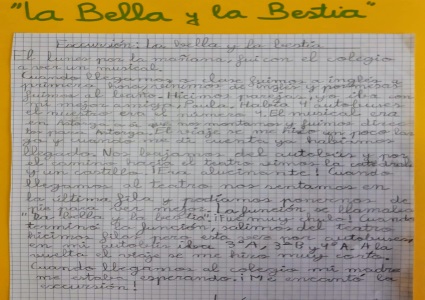 "La Bella y la Bestia"
Excursión: La bella y la bestia
El lunes por la mañana, fui con el colegio
a ver un musical.
Cuando llegamos a clase fuimos a inglés y
primera hora, vinimos de inglés y
fuimos al baño. Hicimos parejas, yo iba con
mi mejor amiga, Paula. Había 4 autobuses
el nuestro era el número 4. El musical era
en Astorga
Astorga. El viaje se me hizo un poco largo
y cuando me di cuenta ya habíamos
llegado. Nos bajamos del autobús y por
el camino hacia el teatro vimos la catedral
y un castillo. ¡Era alucinante! Cuando
llegamos al teatro nos sentamos en
la última fila y podíamos ponernos de
pie para ver mejor. La función se llamaba
"La bella y la bestia". Fue muy chulo. Cuando
terminó la función, salimos del teatro
hicimos filas para autobuses,
en mi autobús iba 3ºA, 3ºB y 4ºA. A la
vuelta el viaje se me hizo muy corto.
Cuando llegamos al colegio mi madre
me estaba esperando. ¡Me encantó la
excursión!